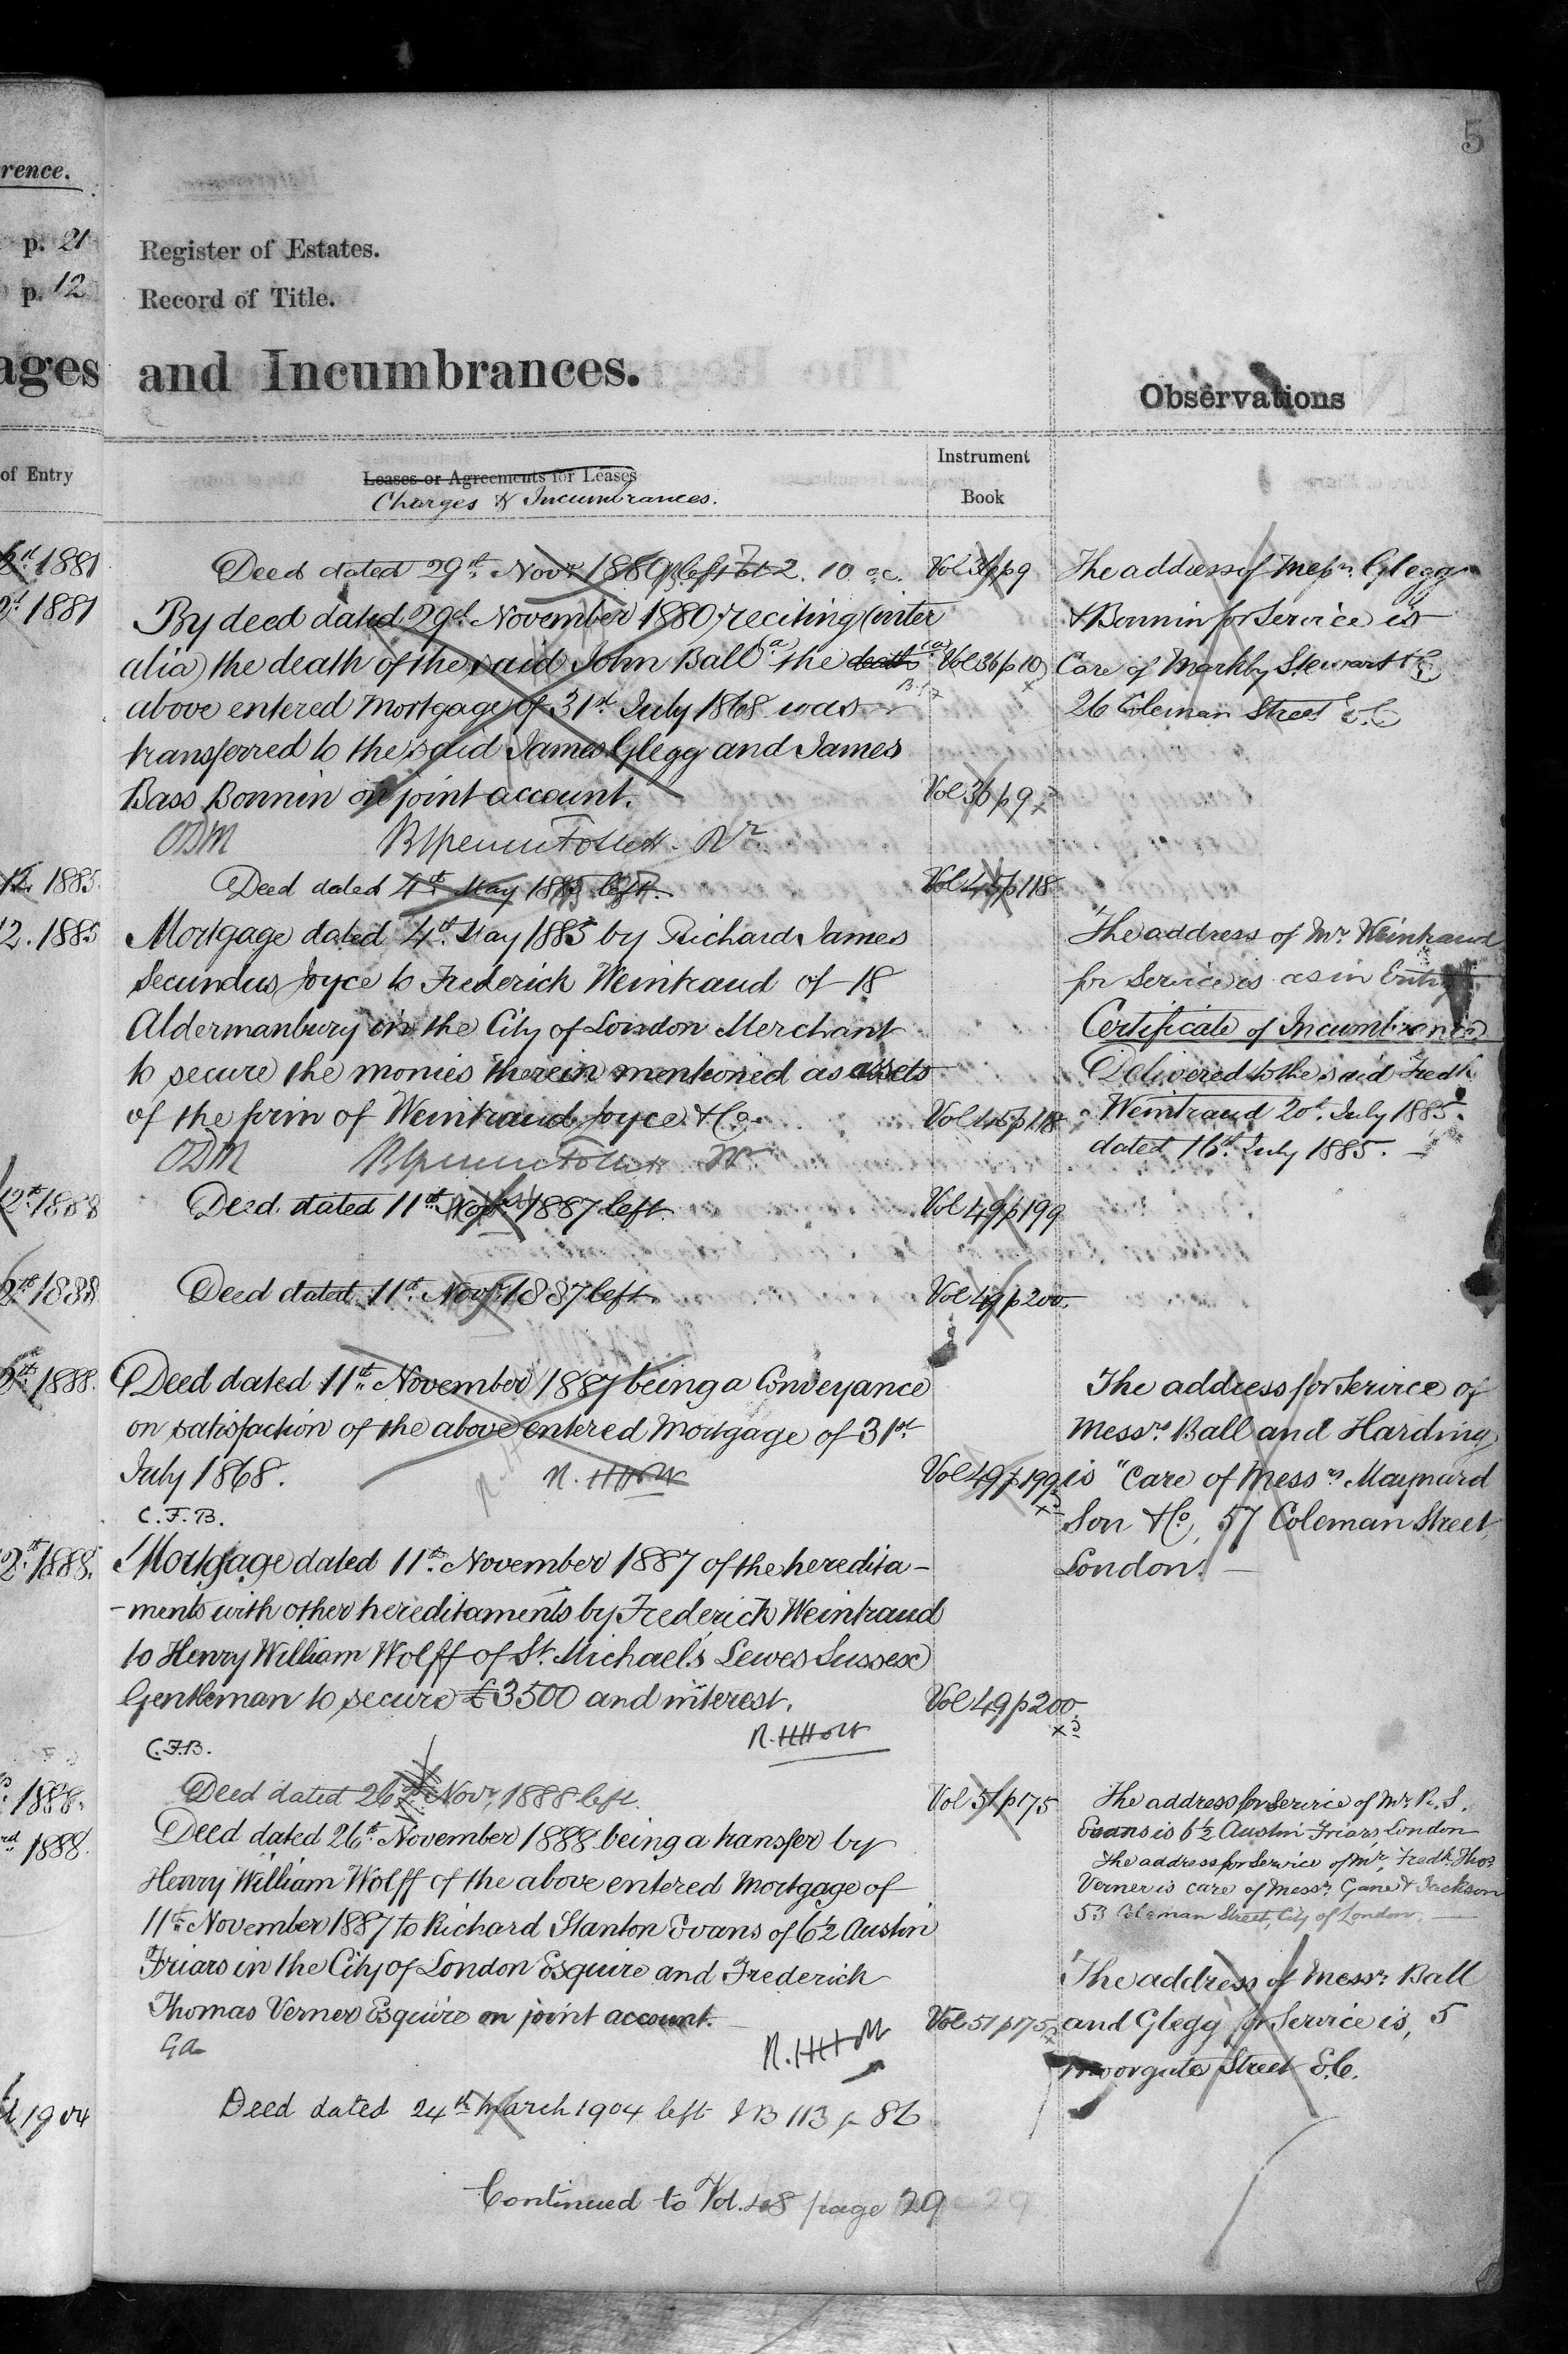 5
rence.
p. 21
p. 12
ages
of Entry
Register of Estates.
Record of Title.
and Incumbrances.
Observations
Leases or Agreements for Leases
Charges & Incumbrances.
Instrument
Book
1881
Deed dated 29th Novr 1880 left at 2. 10 oc.
Vol 36 p 9
1881
By deed dated 29th November 1880 reciting (inter
alia) the death of the said John Ball (a) the death
(a) Vol 36 p 10
above entered Mortgage of 31st July 1868 was
transferred to the said James Glegg and James
Bass Bonnin on joint account.
Vol 36 p 9
ODM
The address of Messrs Glegg
& Bonnin for Service is
Care of Markby Stewart & Co
26 Coleman Street E.C
1885
Deed dated 4th May 1885 left.
Vol 45 p 118
12. 1885
Mortgage dated 4th May 1885 by Richard James
Secundus Joyce to Frederick Weintraud of 18
Aldermanbury in the City of London Merchant
to secure the monies therein mentioned as assets
of the firm of Weintraud Joyce & Co.
Vol 45 p 118
ODM
The address of Mr. Weintraud
for Service is as in Entry.
Certificate of Incumbrance
Delivered to the said Fredk
Weintraud 20th July 1885.
dated 16th July 1885.
1888
Deed dated 11th Novr 1887 left.
Vol 49 p 199
1888
Deed dated 11th Novr 1887 left.
Vol 49 p 200.
1888.
Deed dated 11th November 1887 being a Conveyance
on satisfaction of the above entered Mortgage of 31st
July 1868.
Vol 49 p 199
C.F.B.
The address for Service of
Messrs. Ball and Harding
is "Care of Messrs Maynard
Son & Co, 57 Coleman Street,
London.
1888.
Mortgage dated 11th November 1887 of the heredita-
-ments with other hereditaments by Frederick Weintraud
to Henry William Wolff of St. Michael's Lewes Sussex
Gentleman to secure £3500 and interest.
Vol 49 p 200
C.F.B.
1888.
Deed dated 26th Novr. 1888 left.
Vol 51 p 175
1888.
Deed dated 26th November 1888 being a transfer by
Henry William Wolff of the above entered Mortgage of
11th November 1887 to Richard Stanton Evans of 6½ Austin
Friars in the City of London Esquire and Frederick
Thomas Verner Esquire on joint account.
Vol 51 p 175
GA
The address for Service of Mr. R. S.
Evans is 6½ Austin Friars London
The address for Service of Mr. Fredk. Thos.
Verner is care of Messrs. Gane & Jackson
53 Coleman Street, City of London.
The address of Messrs Ball
and Glegg for Service is, 5
Moorgate Street E.C.
1904
Deed dated 24th March 1904 left I B 113 p 86
Continued to Vol. 48 page 29